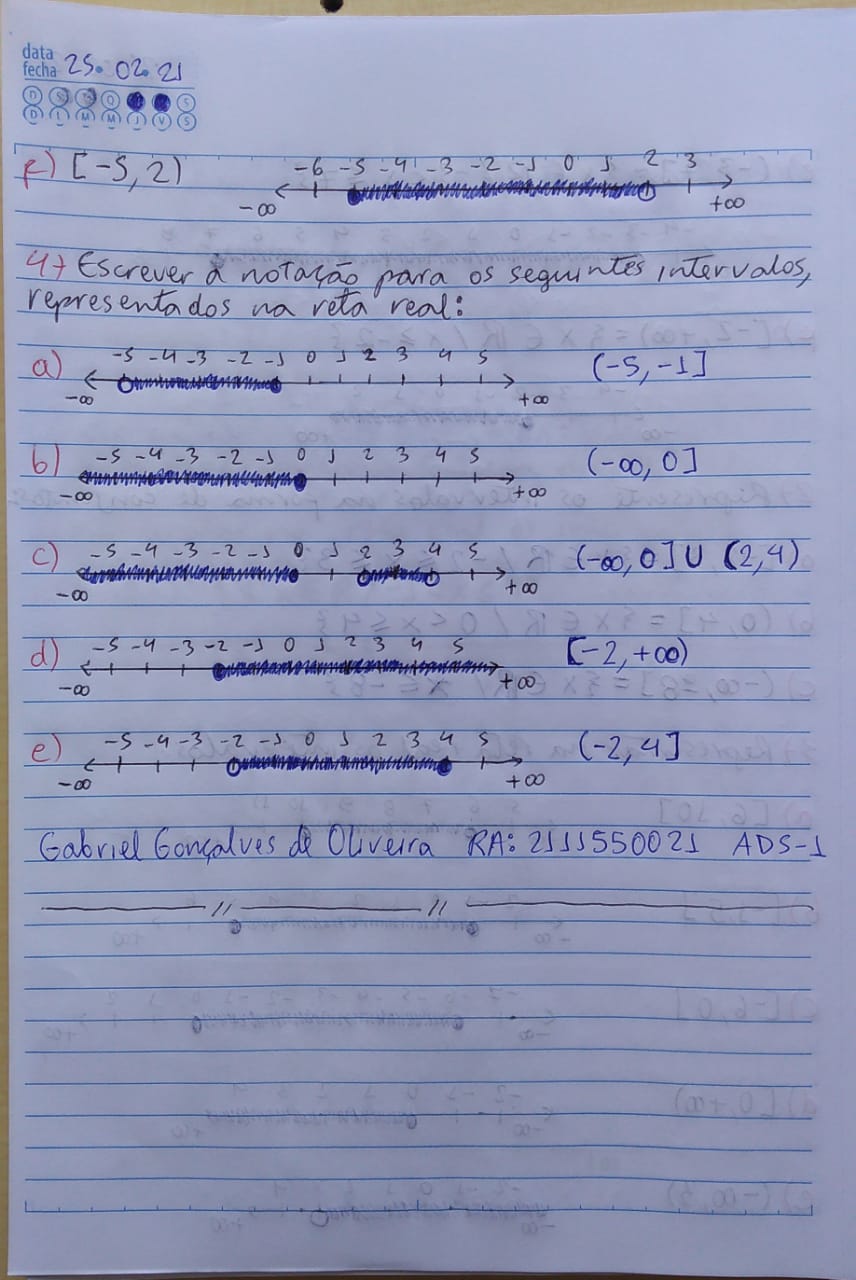 data
fecha 25. 02. 21
D S T Q Q S S
D L M M J V S
f) [-5, 2)
-6 -5 -4 -3 -2 -1 0 1 2 3
-∞ +∞
4) Escrever a notação para os seguintes intervalos,
representados na reta real:
a) -5 -4 -3 -2 -1 0 1 2 3 4 5 (-5, -1]
-∞ +∞
b) -5 -4 -3 -2 -1 0 1 2 3 4 5 (-∞, 0]
-∞ +∞
c) -5 -4 -3 -2 -1 0 1 2 3 4 5 (-∞, 0] U (2,4)
-∞ +∞
d) -5 -4 -3 -2 -1 0 1 2 3 4 5 [-2, +∞)
-∞ +∞
e) -5 -4 -3 -2 -1 0 1 2 3 4 5 (-2, 4]
-∞ +∞
Gabriel Gonçalves de Oliveira RA: 2111550021 ADS-1